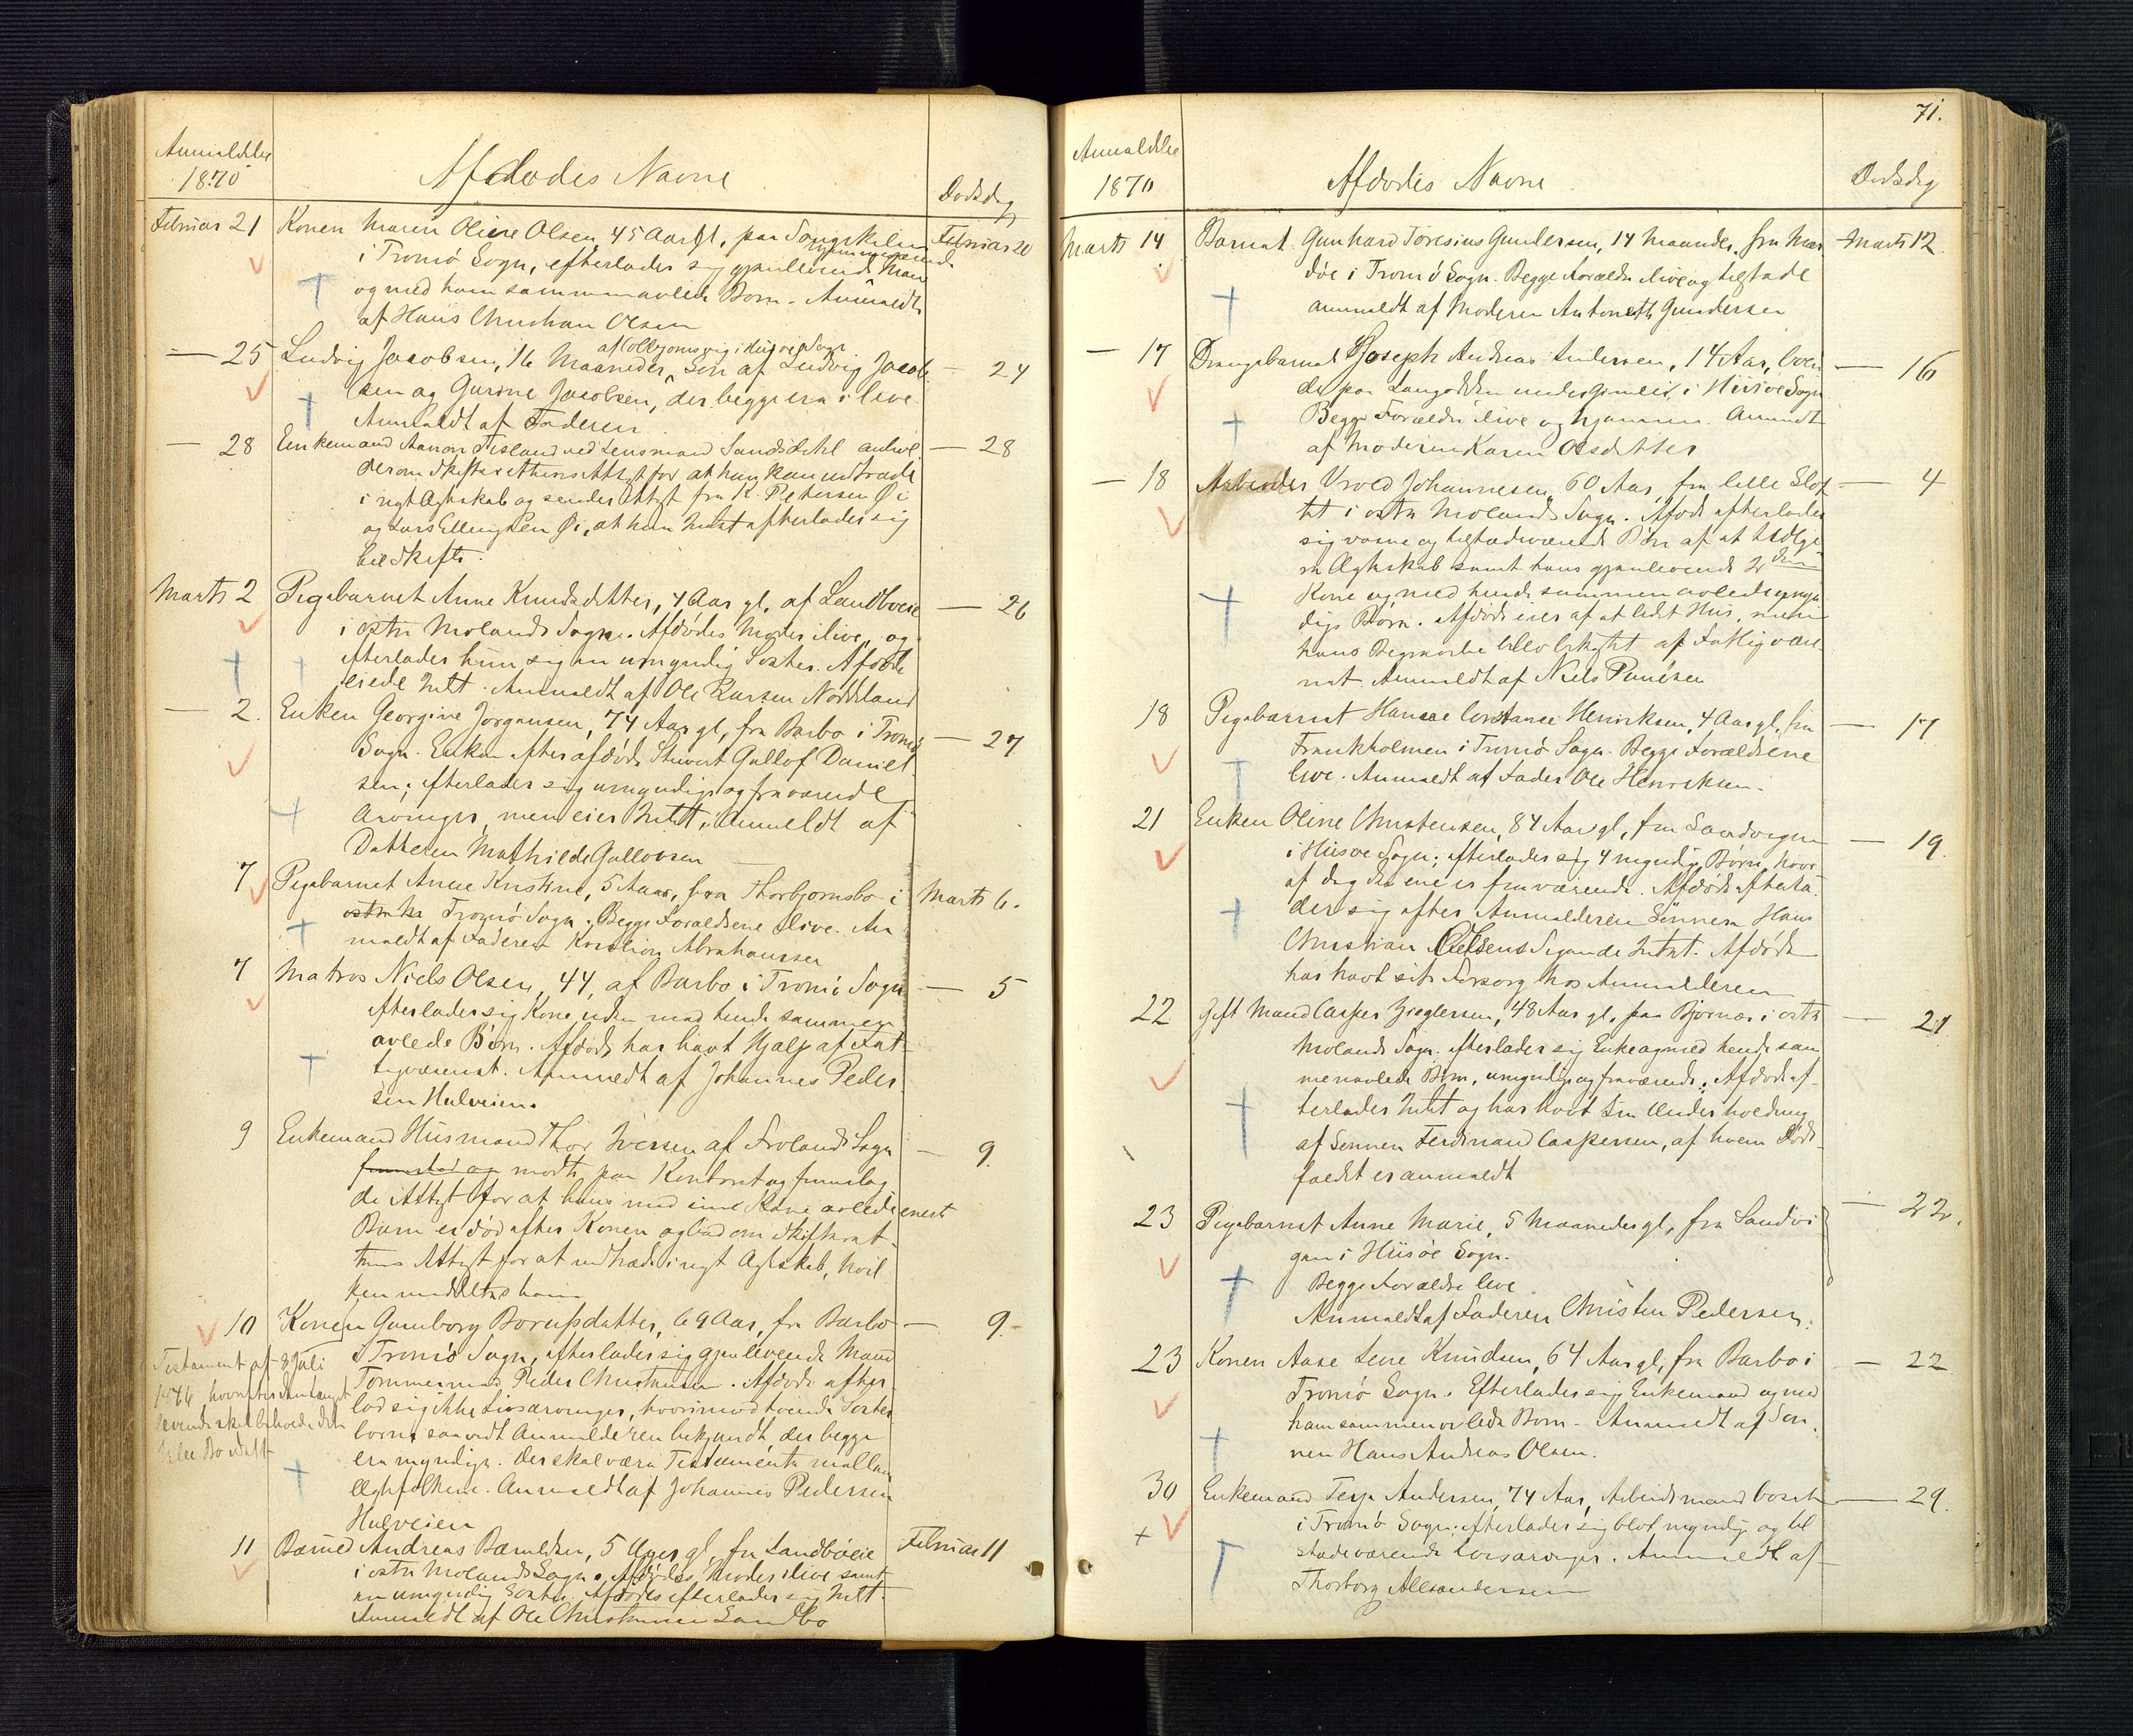 Anmeldelse
1870
Afdødes Navne
Dødsdag
Februar 21 Konen Maren Oline Olsen, 45 Aar gl, paa Songekilen Februar 20
i Tromø Sogn, efterlader sig gjenlevende Mand
og med ham sammenavlede Børn. Anmeldt
af Hans Christian Olsen
af Kolbjørnsvig i Hisøe Sogn
— 25 Ludvig Jacobsen, 16 Maaneder, Søn af Ludvig Jacob — 24
sen og Gurine Jacobsen, der begge ere i live
Anmeldt af Faderen
— 28 Enkemand Aanon ved Lensmand anhol — 28
der om Skifterettens Attest for at han kan indtræde
i nyt Ægteskab og sender Attest fra K. Petersen Ø i
og Lars Ellingsen Øi, at han Intet efterlader sig
til Skifte.
Marts 2 Pigebarnet Anne Knudsdatter, 4 Aar gl, af Landboeie — 26
i østre Molands Sogn. Afdødes Moder ilive, og
efterlader hun sig en umyndig Søster. Afdøde
eiede Intet. Anmeldt af Ole Larsen
— 2. Enken Georgine Jørgensen, 74 Aar gl, fra Barbo i Tromø — 27
Sogn. Enken efter afdøde Stuvert Gullof Daniel
sen; efterlader sig umyndige og fraværende
Arvinger, men eier Intet; Anmeldt af
Datteren Mathilde Gullovsen
7 Pigebarnet Anne Kristine, 5 Aar, fra Thorbjørnsbo i Marts 6.
østre Tromø Sogn. Begge Forældrene ilive. An
meldt af Faderen Abrahamsen
7 Matros Niels Olsen, 44, af Barbo i Tromø Sogn — 5
Efterlader sig Kone uden med hende sammen
avlede Børn. Afdøde har havt Hjælp af Fat
tigvæsenet. Anmeldt af Johannes Peder
sen Hulveien.
9 Enkemand Husmand Thor Iversen af Frolands Sogn — 9.
mødte paa Kontoret og fremlag
de Attest for at hans med sine Kone avlede eneste
Barn er død efter Konen og bad om Skifteret
tens Attest for at indtræde i nyt Ægteskab, hvil
ken meddeltes ham
10 Konen Gunborg Borupsdatter, 69 Aar, fra Barbo — 9.
i Tromø Sogn, efterlader sig gjenlevende Mand
Tømmermand Peder Christensen. Afdøde efter
lod sig ikke Livsarvinger, hvorimod tvende Søster
børn, saavidt Anmelderen bekjendt, der begge
ere myndige. Der skal være Testamente mellem
Ægtefolkene. Anmeldt af Johannes Pedersen
Hulveien
Testament af 8 Juli
1846 hvorefter længst
levende skal beholde det
hele Bo
11 Andreas 5 Uger gl, fra Landbøeie Februar 11
i østre Molands Sogn. Afdødes Moder ilive samt
en umyndig Søster. Afdødes efterlader sig Intet.
Anmeldt af Ole Christensen Landbo
71.
Anmeldelse
1870
Afdødes Navne
Dødsdag
Marts 14 Barnet Gunhard Toresius Gundersen, 14 Maaneder, fra Mær Marts 12
døe i Tromø Sogn. Begge Forældre ilive og tilstæde
anmeldt af Moderen Antonette Gundersen
— 17 Drengebarnet Joseph Andreas Andersen, 14 Aar, boen — 16
de paa Langodden under Gimle i Hisøe Sogn
Begge Forældre ilive og hjemme. Anmeldt
af Moderen Karen Olsdatter
— 18 Arbeider Vroed Johannesen, 60 Aar, fra lille Slot — 4
tet i østre Molands Sogn. Afdøde efterlader
sig voxne og tilstædeværende Børn af et tidlige
re Ægteskab samt hans gjenlevende 2den
Kone og med hende sammenavlede umyn
dige Børn. Afdøde eier af et lidet Hus, men
hans Begravelse blev bekostet af Fattigvæse
net. Anmeldt af Niels
18 Pigebarnet Hansine Constanse Henriksen, 4 Aar gl, fra — 17
Frankholmen i Tromø Sogn. Begge Forældrene
live. Anmeldt af Fader Ole Henriksen.
21 Enken Oline Christensen, 84 Aar gl, fra Sandvigen — 19.
i Hisøe Sogn; efterlader sig 4 myndige Børn, hvor
af dog den ene er fraværende. Afdøde efterla
der sig efter Anmelderen Sønnen Hans
Christian Sigende Intet. Afdøde
har havt sit Forsorg hos Anmelderen
22 Gift Mand Casper Zieglersen, 48 Aar gl, paa Bjørnæs i østre — 21
Molands Sogn; efterlader sig Enke og med hende sam
menavlede Børn, umyndige og fraværende. Afdøde ef
terlader Intet og har havt sin Underholdning
af Sønnen Ferdinand Caspersen, af hvem Døds
faldet er anmeldt
23 Pigebarnet Anne Marie, 5 Maaneder gl, fra Sandvi — 22.
gen i Hisøe Sogn.
Begge Forældre leve
Anmeldt af Faderen Christen Pedersen.
23 Konen Aase Lene Knudsen, 64 Aar gl, fra Barbo i — 22
Tromø Sogn. Efterlader sig Enkemand og med
ham sammenavlede Børn. Anmeldt af Søn
nen Hans Andreas Olsen.
30 Enkemand Terje Andersen, 74 Aar, Arbeidsmand bosat — 29.
i Tromø Sogn; efterlader sig blot myndige og til
stædeværende Livsarvinger. Anmeldt af
Thorborg